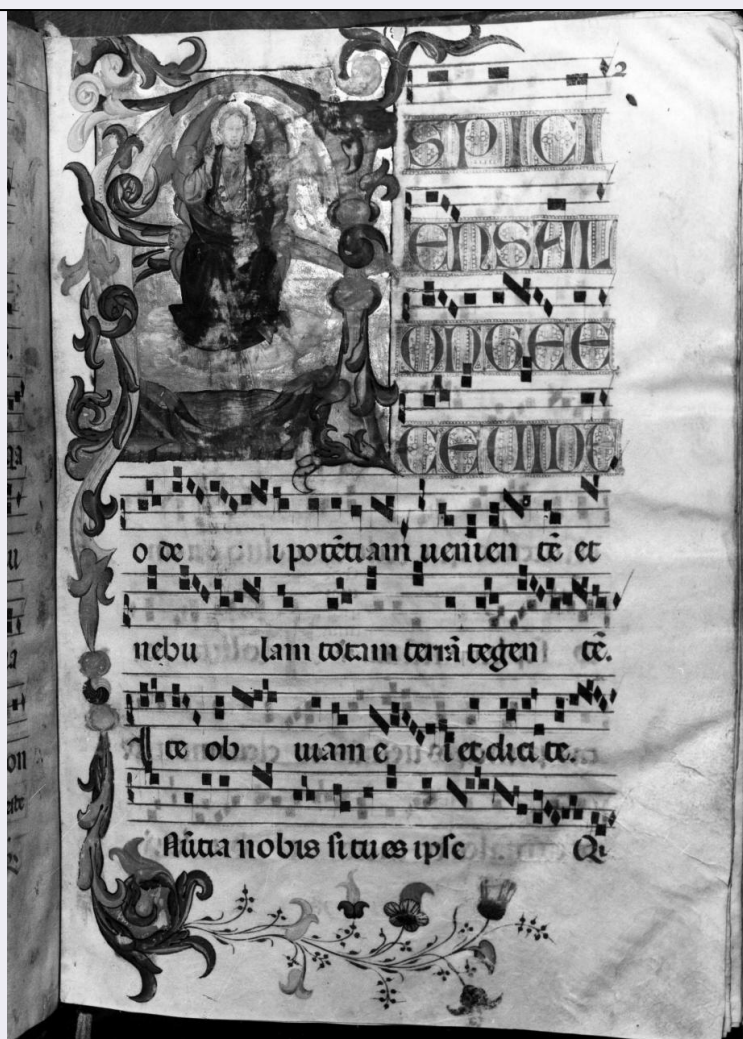 2
ASPICI
ENSA L
ONGEE
CEUIDE
o de i potētiam uenien tē et
nebu lam totam terrā tegen tē.
Ite ob uiam e i et dici te.
Nūtia nobis si tu es ipse Qi